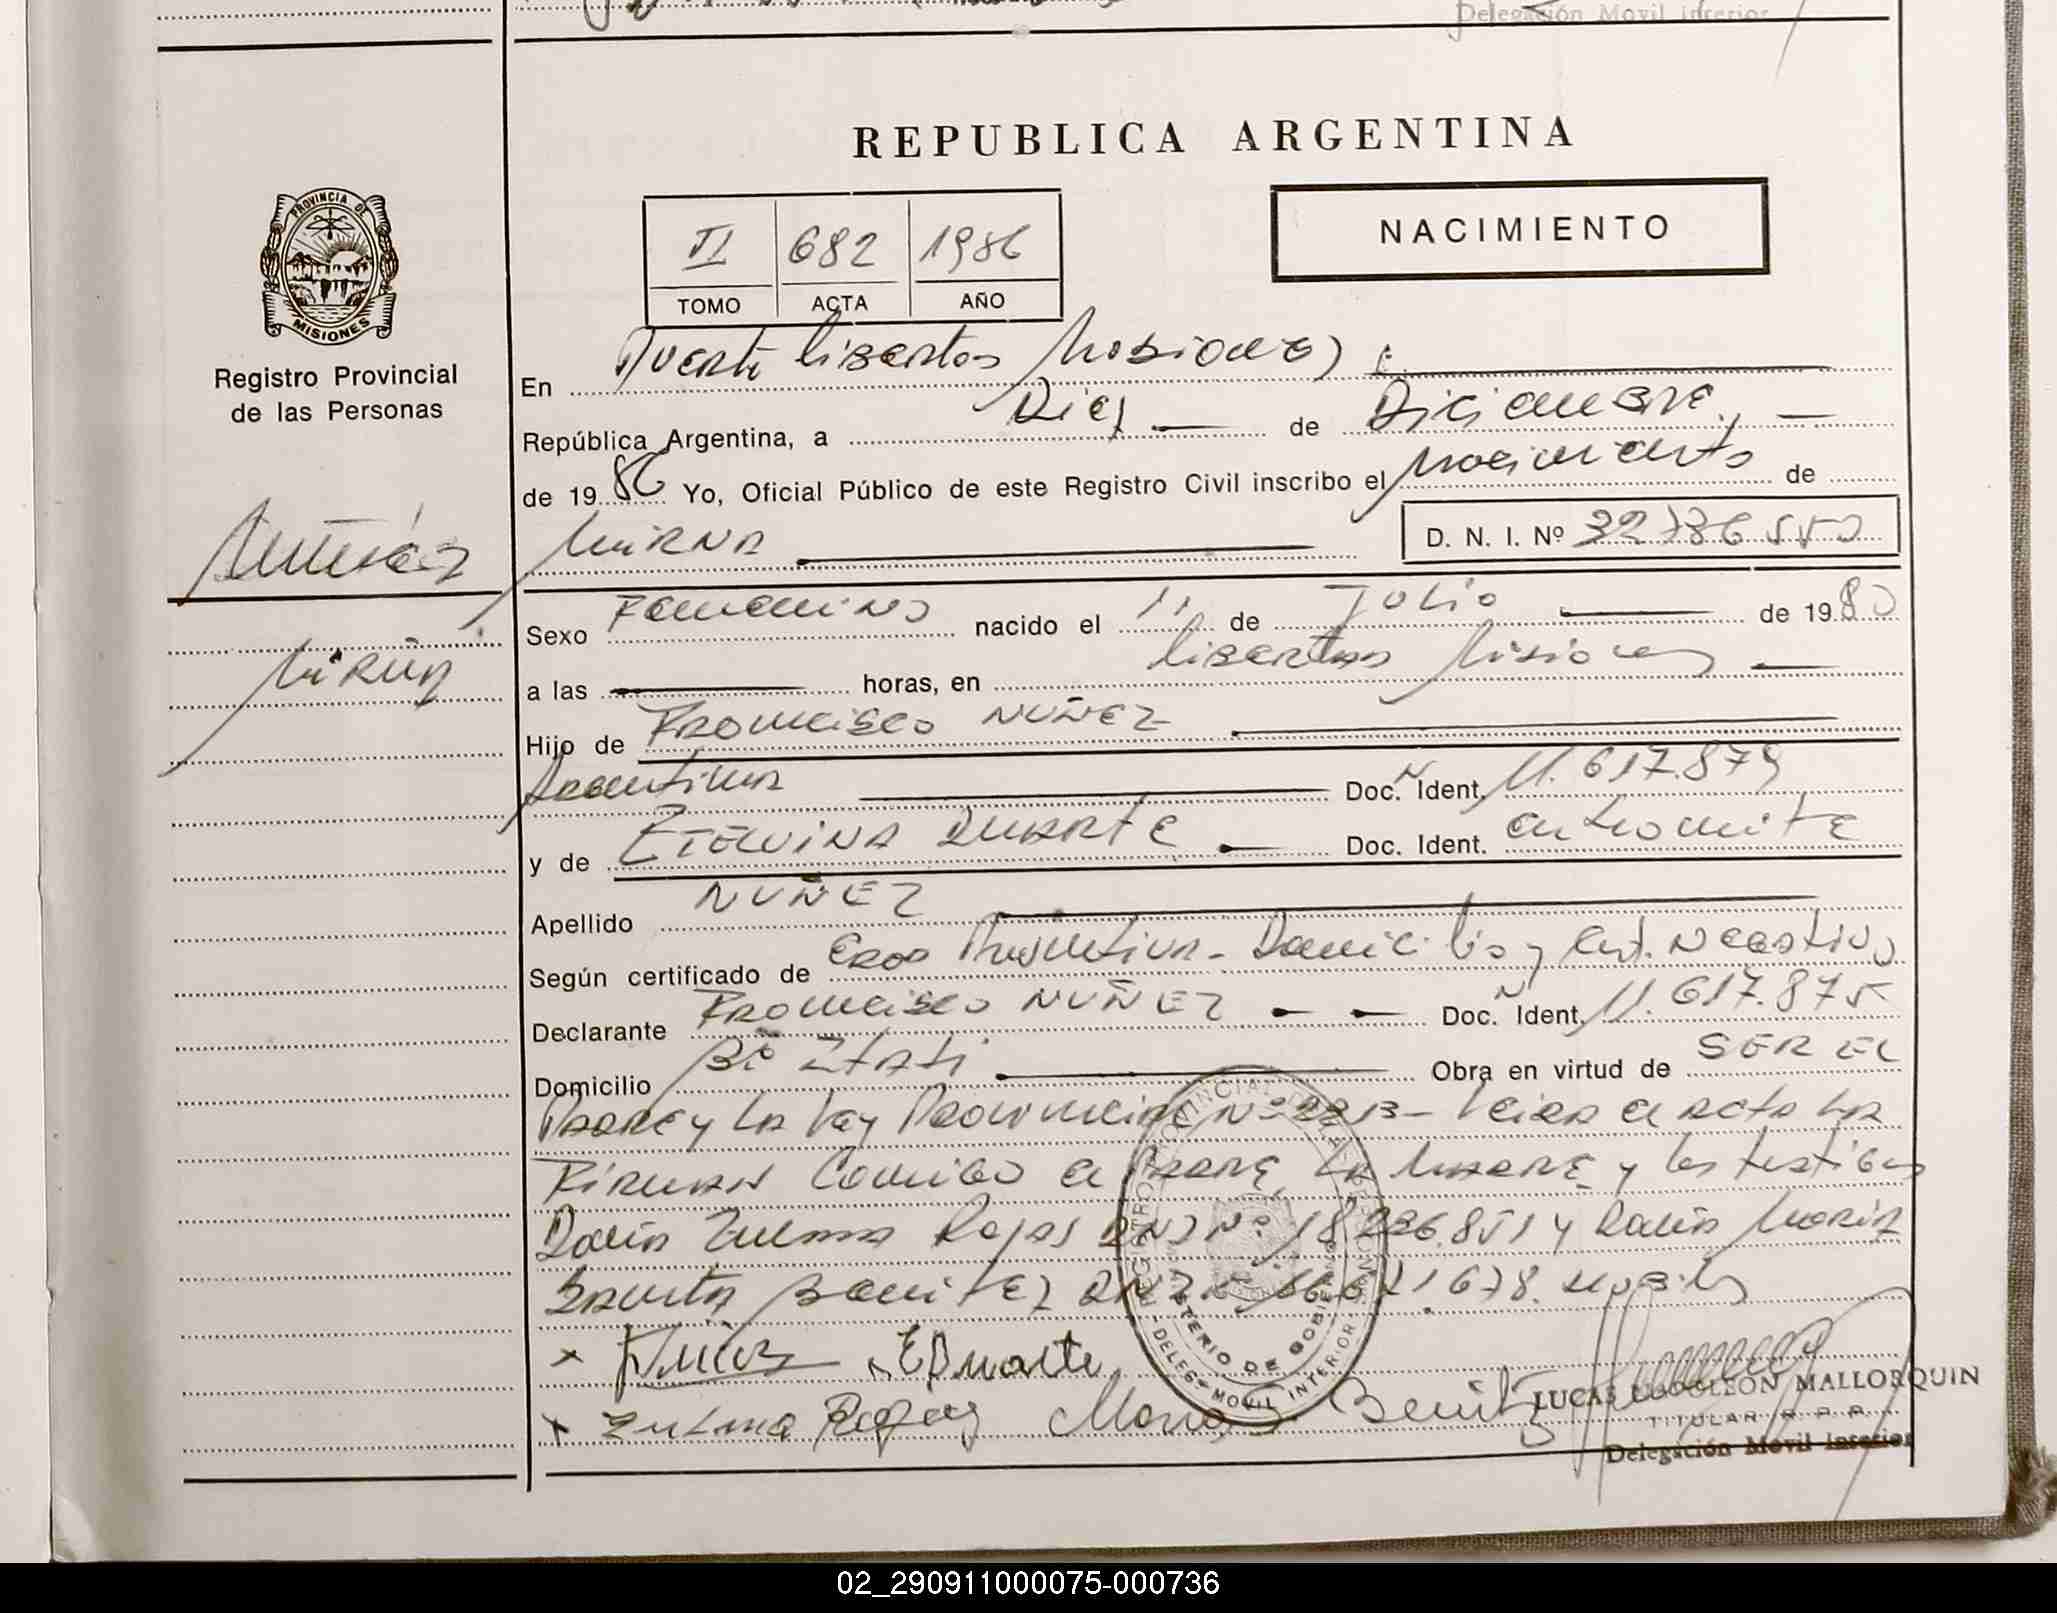 Delegación Movil Interior
REPUBLICA ARGENTINA
PROVINCIA DE
MISIONES
Registro Provincial
de las Personas
II 682 1986
TOMO ACTA AÑO
NACIMIENTO
En Puerto Libertad Misiones)
República Argentina, a Diez de Diciembre.
de 1986 Yo, Oficial Público de este Registro Civil inscribo el Nacimiento de
Núñez
Mirna
D. N. I. Nº
Sexo Femenino nacido el 11 de Julio de 1980
Mirna
a las horas, en Libertad Misiones
Hijo de Francisco NUÑEZ
Argentina Doc. N Ident. 11.617.879
y de Etelvina Duarte Doc. Ident. en tramite
Apellido NUÑEZ
Según certificado de Domicilio y Cert. Negativo
Declarante Francisco NUÑEZ Doc. N Ident. 11.617.875
Domicilio Bº Itati Obra en virtud de SER EL
Padre y la Ley Provincial Nº Leida el acta la
Firman Conmigo el Padre, la Madre y los testigos
Doña Zulma Rojas DNI Nº 18 y Doña Maria
Benitez
x E Duarte
x Zulma Rojas Maria Benitez
LUCAS NAPOLEON MALLORQUIN
TITULAR R.P.P.
Delegación Movil Interior
REGISTRO PROVINCIAL DE LAS PERSONAS
MINISTERIO DE GOBIERNO
DELEGª MOVIL INTERIOR
02_290911000075-000736